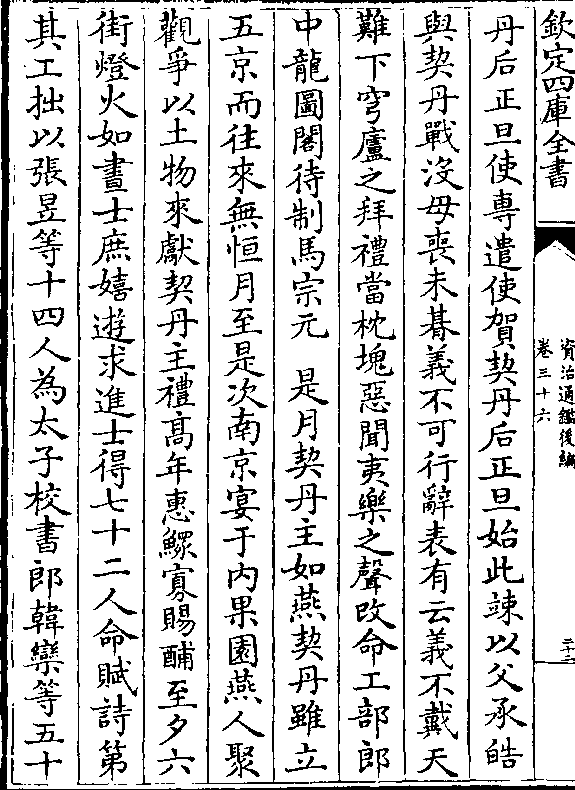 欽定四庫全書
資治通鑑後編
卷三十六
二十二
丹后正旦使專遣使賀契丹后正旦始此竦以父承皓
與契丹戰没母喪未朞義不可行辭表有云義不戴天
難下穹廬之拜禮當枕塊惡聞夷樂之聲改命工部郎
中龍圖閣待制馬宗元　是月契丹主如燕契丹雖立
五京而往來無恒月至是次南京宴于内果園燕人聚
觀爭以土物來獻契丹主禮高年惠鰥寡賜酺至夕六
街燈火如晝士庶嬉遊求進士得七十二人命賦詩第
其工拙以張昱等十四人為太子校書郎韓欒等五十